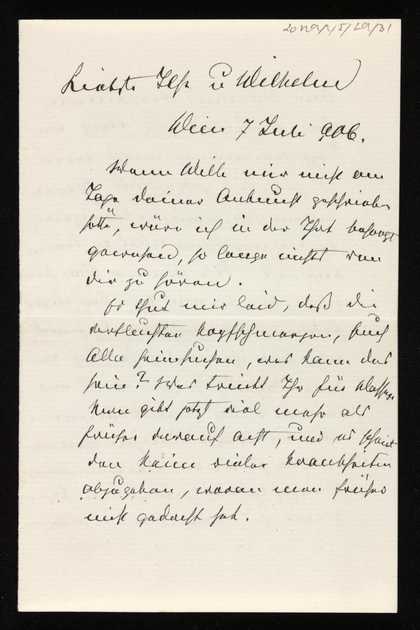 20 Na/1/5/29/31
Liebste Ilse u Wilhelm
Wien 7 Juli 906.
Wenn Willi mir nicht am
Tage deiner Ankunft geschrieben
hätte, wäre ich in der That besorgt
gewesen, so lange nichts von
dir zu hören.
Es thut mir leid, daß die
verfluchten Kopfschmerzen, Euch
Alle heimsuchen, was kann das
sein? Was trinkt Ihr für Wasser
Man gibt jetzt viel mehr als
früher darauf acht, und es scheint
den Keim vieler Krankheiten
abzugeben, woran man früher
nicht gedacht hat.